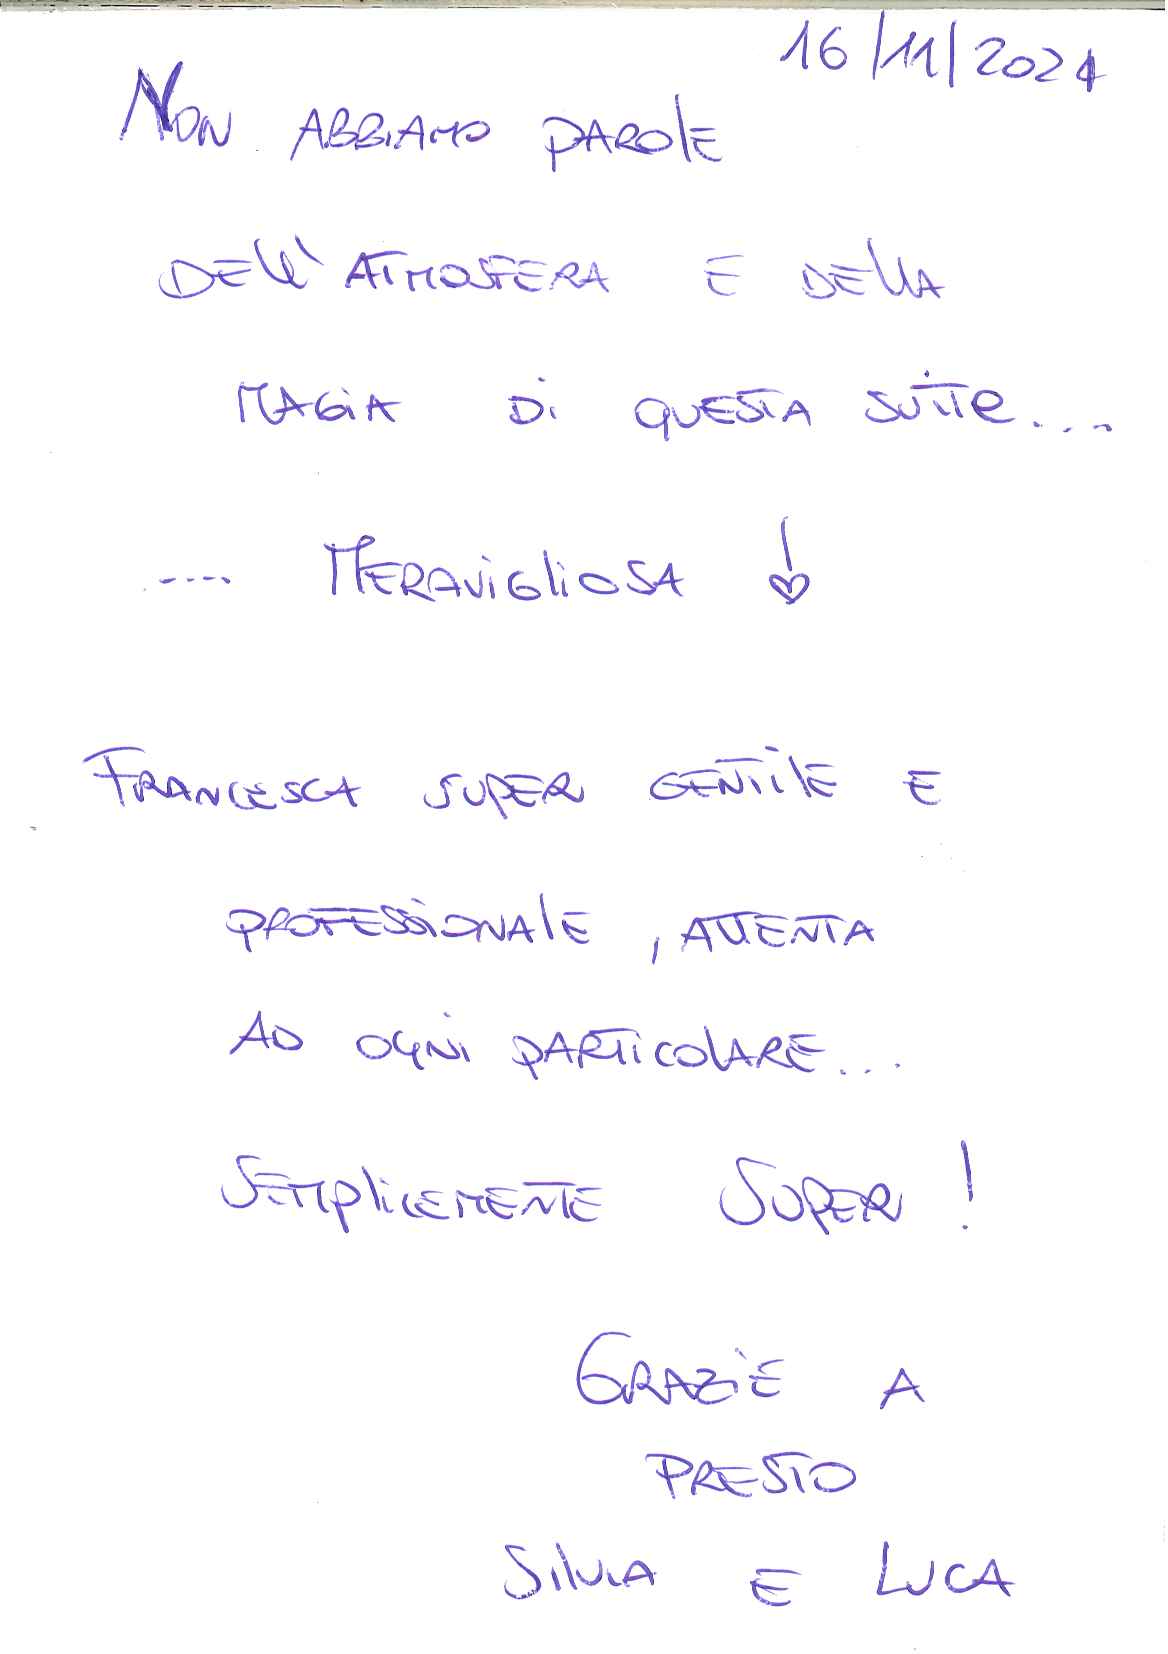 16/11/2024
NON ABBIAMO PAROLE
DELL'ATMOSFERA E DELLA
MAGIA DI QUESTA SUITE....
.... MERAVIGLIOSA !
FRANCESCA SUPER GENTILE E
PROFESSIONALE, ATTENTA
AD OGNI PARTICOLARE...
SEMPLICEMENTE SUPER!
GRAZIE A
PRESTO
SILVIA E LUCA